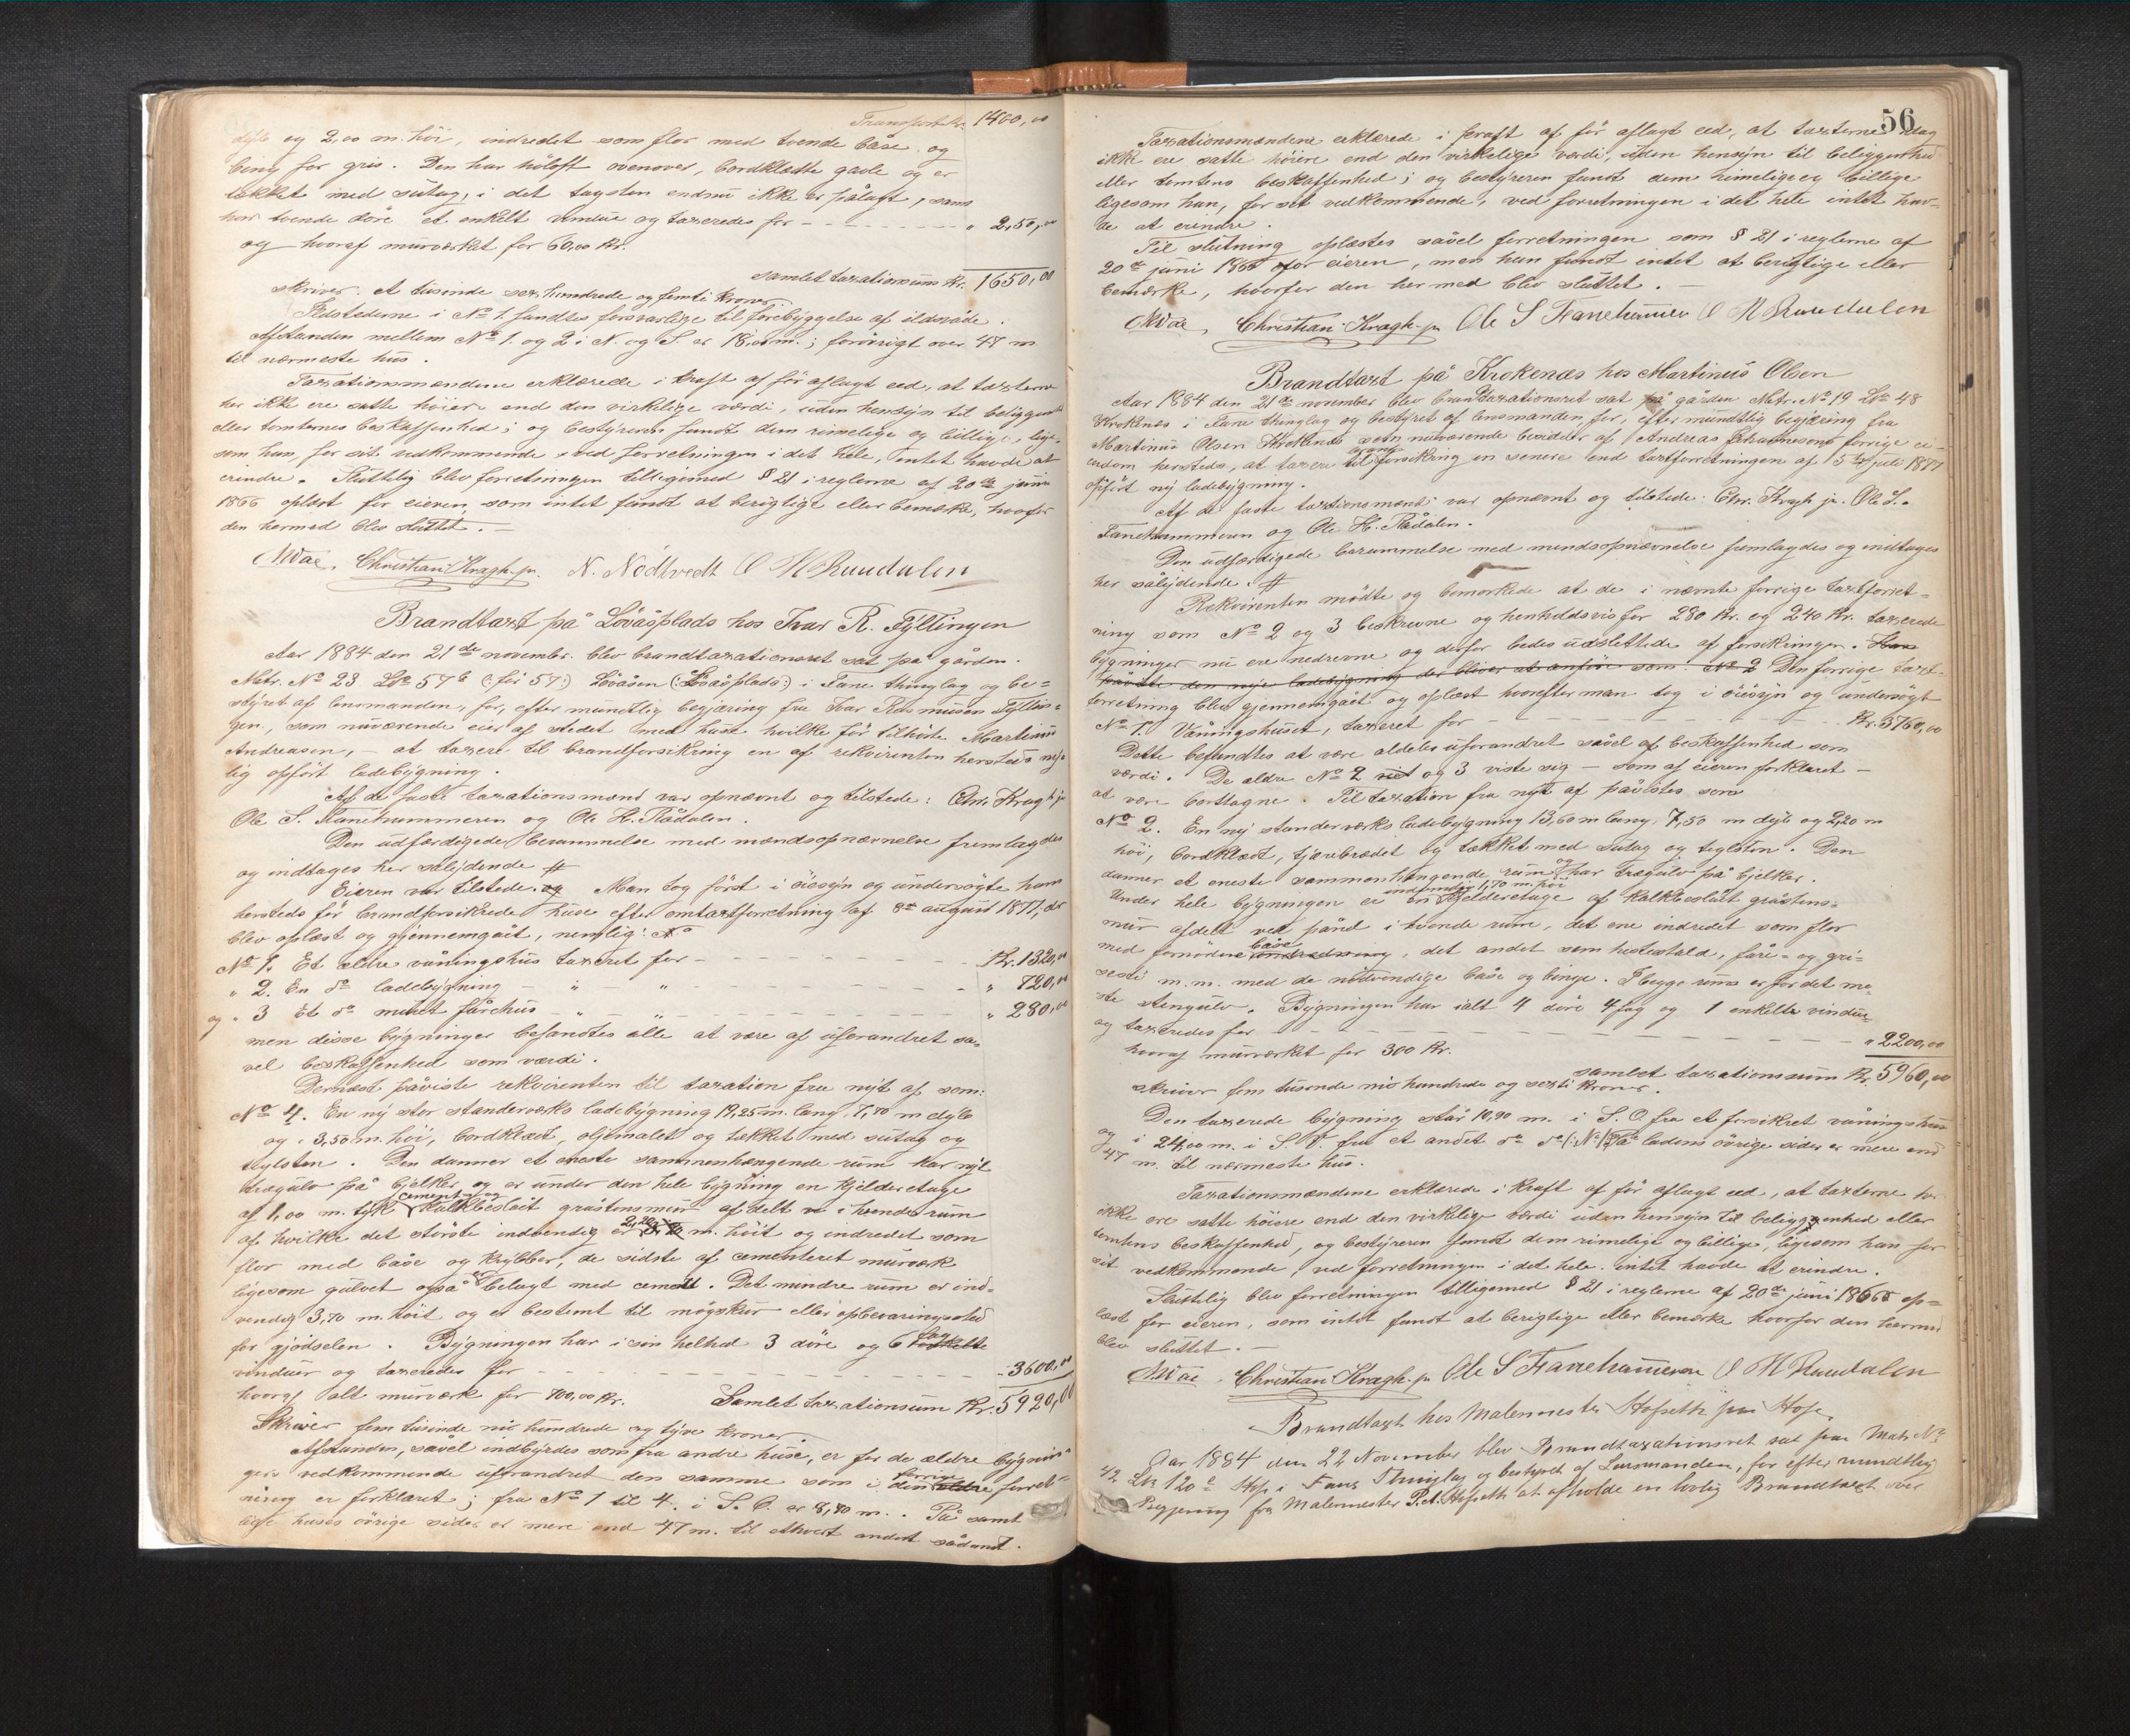 Transport kr. 1400,00
dyb og 2,00 m. høi, indredet som flor med tvende båse og
beng for gris. Den har høloft ovenover, bordklædte gavle og er
tækket med sutag, i det tagsten endnu ikke er pålagt, samt
har tvende døre et enkelt vindue og taxeredes for - - - " 250,00
og hvoraf murværket for 60,00 Kr.
samlet taxationssum Kr. 1650,00
skriver: et tusinde sex hundrede og femti kroner.
Ildstederne i No 1. fandtes forsvarlige til forebyggelse af ildsvåde.
Afstanden mellem No 1. og 2 i N. og S. er 18,00 m.; forøvrigt over 47 m
til nærmeste hus.
Taxationsmændene erklærede i kraft af før aflagt eed, at taxterne
her ikke ere satte høiere end den virkelige værdi, uden hensyn til beliggenhed
eller tomternes beskaffenhed; og bestyreren fandt dem rimelige og billige, lige-
som han, for sit vedkommende ved forretningen i det hele, intet havde at
erindre. Sluttelig blev forretningen tilligemed § 21 i reglerne af 20de juni
1866 oplæst for eieren, som intet fandt at berigtige eller bemærke, hvorfor
den hermed blev sluttet. -
Christian Kragh jr. N. Nødtvedt O H Raadalen
Brandtaxt på Løvåsplads hos Ivar R. Tyltingen
Aar 1884 den 21de novembr. blev brandtaxationsret sat på gården.
Matr. No 23 Lbr. 57b (: før 57:) Løvåsen (: Løvåsplads:) i Fane thinglag og be-
styret af lensmanden, for, efter mundtlig begjæring fra Ivar Rasmusen Tyltin-
gen, som nuværende eier af stedet med huse hvilke før tilhørte Martinus
Andreasen, - at taxere til brandforsikring en af rekvirenten hersteds ny-
lig opført ladebygning.
Af de faste taxationsmænd var opnævnt og tilstede: Chr. Kragh jr
Ole S. Fanehammeren og Ole H. Rådalen.
Den udfærdigede berammelse med mændsopnævnelse fremlagdes
og indtages her sålydende #
Eieren var tilstede. og Man tog først i øiesyn og undersøgte hans
hersteds før brandforsikrede huse efter omtaxtforretning af 8de august 1877, der
blev oplæst og gjennemgået, nemlig: No
No 1. Et ældre våningshus taxeret for - - - Kr. 1320,00
" 2. En do ladebygning - " - " - - - " 720,00
og " 3 Et do muret fårehus - " - " - - - " 280,00
men disse bygninger befandtes alle at være af uforandret så-
vel beskaffenhed som værdi.
Dernæst påviste rekvirenten til taxation fra nyt af som:
No 4. En ny stor standerværks ladebygning 19,25 m. lang, 7,70 m dyb
og 3,50 m. høi, bordklædt, oljemalet og tækket med sutag og
teglsten. Den danner et eneste sammenhængende rum har nyt
trægulv på bjelker, og er under den hele bygning en kjelderetage
af 1,00 m. tyk cement og kalkbeslåt gråstensmur afdelt i tvende rum
af hvilke det største indvendig er 2,20 m. høit og indredet som
flor med båse og krybber, de sidste af cementeret murværk
ligesom gulvet også er belagt med cement. Det mindre rum er ind-
vendig 3,70 m. høit og er bestemt til møgskur eller opbevaringssted
for gjødselen. Bygningen har i sin helhed 3 døre og 6 fag enkelte
vinduer og taxeredes for - - - " 3600,00
hvoraf alt murværk for 700,00 Kr. Samlet taxationssum Kr. 5920,00
Skriver fem tusinde ni hundrede og tyve kroner.
Afstanden, såvel indbyrdes som fra andre huse, er for de ældre bygnin-
gers vedkommende uforandret den samme som i den forrige ældre forret-
ning er forklaret; fra No 1 til 4. i S. O. er 8,80 m. . På samt
lige huses øvrige sider er mere end 47 m. til ethvert andet sådant.
56
Taxationsmændene erklærede i kraft af før aflagt eed, at taxterne idag
ikke ere satte høiere end den virkelige værdi, uden hensyn til beliggenhed
eller tomtens beskaffenhed; og bestyreren fandt dem rimelige og billige
ligesom han, for sit vedkommende, ved forretningen i det hele intet hav-
de at erindre.
Til slutning oplæstes såvel forretningen som § 21 i reglerne af
20de juni 1866 for eieren, men han fandt intet at berigtige eller
bemærke, hvorfor den hermed blev sluttet. -
Christian Kragh jr Ole S Fanehammer O H Raadalen
Brandtaxt på Krokenæs hos Martinus Olsen
Aar 1884 den 21de november blev brandtaxationsret sat på gården Matr. No 19 Lbr. 48
Krokenæs i Fane thinglag og bestyret af lensmanden, for, efter mundtlig begjæring fra
Martinus Olsen Krokenæs som nuværende besidder af Andreas Johannesens forrige ei-
endom hersteds, at taxere til brandforsikring en senere end taxtforretningen af 15de juli 1877
opført ny ladebygning.
Af de faste taxtionsmænd var opnævnt og tilstede: Chr. Kragh jr. Ole S.
Fanehammeren og Ole H. Rådalen.
Den udfærdigede berammelse med mændsopnævnelse fremlagdes og indtages
her sålydende. #
Rekvirenten mødte og bemærkede at de i nævnte forrige taxtforret-
ning som No 2 og 3 beskrevne og henholdsvis for 280 Kr. og 240 Kr. taxerede
bygninger nu ere nedrevne og derfor bedes udslettede af forsikringen. Han
påviste den nye ladebygning der bliver at anføre som No 2 Den forrige taxt-
forretning blev gjennemgået og oplæst hvorefter man tog i øiesyn og undersøgt
No 1. Våningshuset, taxeret for - - - Kr. 3760,00
Dette befandtes at være aldeles uforandret såvel af beskaffenhed som
værdi. De ældre No 2 og 3 viste sig - som af eieren forklaret -
at være borttagne. Til taxation fra nyt af påvistes som
No 2. En ny standerværks ladebygning 13,60 m lang, 7,50 m dyb og 2,20 m
høi, bordklædt, tjærebrædet og tækket med sutag og teglsten. Den
danner et eneste sammenhængende rum og har trægulv på bjelker.
Under hele bygningen er en indvendig 1,70 m. høi kjelderetage af kalkbeslåt gråstens-
mur afdelt ved pånel i tvende rum, det ene indredet som flor
med fornødne båse indredning, det andet som hestestald, fåre- og gri-
sesti m.m. med de nødvendige båse og benge. I begge rum er for det me-
ste stengulv. Bygningen har ialt 4 døre 4 fag og 1 enkelte vindue
og taxeredes for - - - " 2200,00
hvoraf murværket for 300 Kr.
samlet taxationssum Kr. 5960,00
skriver fem tusende nio hundrede og sexti kroner.
Den taxerede bygning står 10,90 m. i S. O. fra et forsikret våningshus
og i 24,00 m. i S. V. fra et andet do do (: No 1:) På ladens øvrige sider er mere end
47 m. til nærmeste hus.
Taxationsmændene erklærede i kraft af før aflagt eed, at taxterne her
ikke ere satte høiere end den virkelige værdi uden hensyn til beliggenhed eller
tomtens beskaffenhed, og bestyreren fandt dem rimelige og billige, ligesom han for
sit vedkommende, ved forretningen i det hele intet havde at erindre.
Sluttelig blev forretningen tilligemed § 21 i reglerne af 20de juni 1866 op-
læst for eieren, som intet fandt at berigtige eller bemærke hvorfor den hermed
blev sluttet. -
Christian Kragh jr Ole S Fanehammeren O H Raadalen
Brandtaxt hos Malermester Hofseth paa Hope.
Aar 1884 den 22 November blev Brandtaxationsret sat paa Matr. No
42 Lbr 120c Hop i Fane Thinglag og bestyret af Lensmanden, for efter mundtlig
Begjering fra Malermester P. A. Hofseth at afholde en lovlig Brandtaxt over